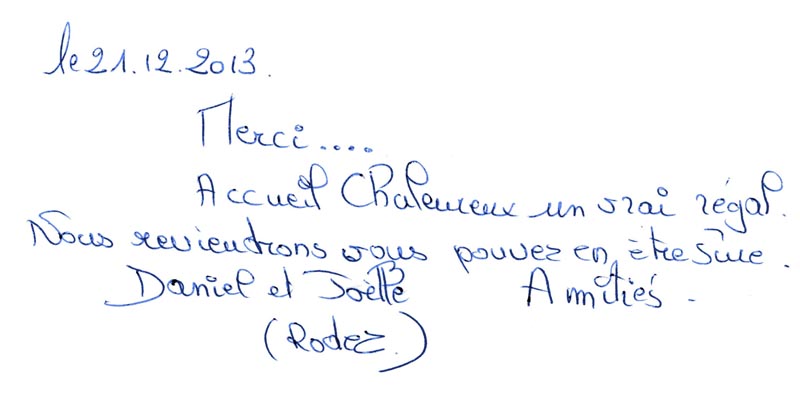 le 21.12.2013.
Merci....
Accueil Chaleureux un vrai régal.
Nous reviendrons vous pouvez en être sûre.
Daniel et Joëlle Amitiés.
(Rodez.)